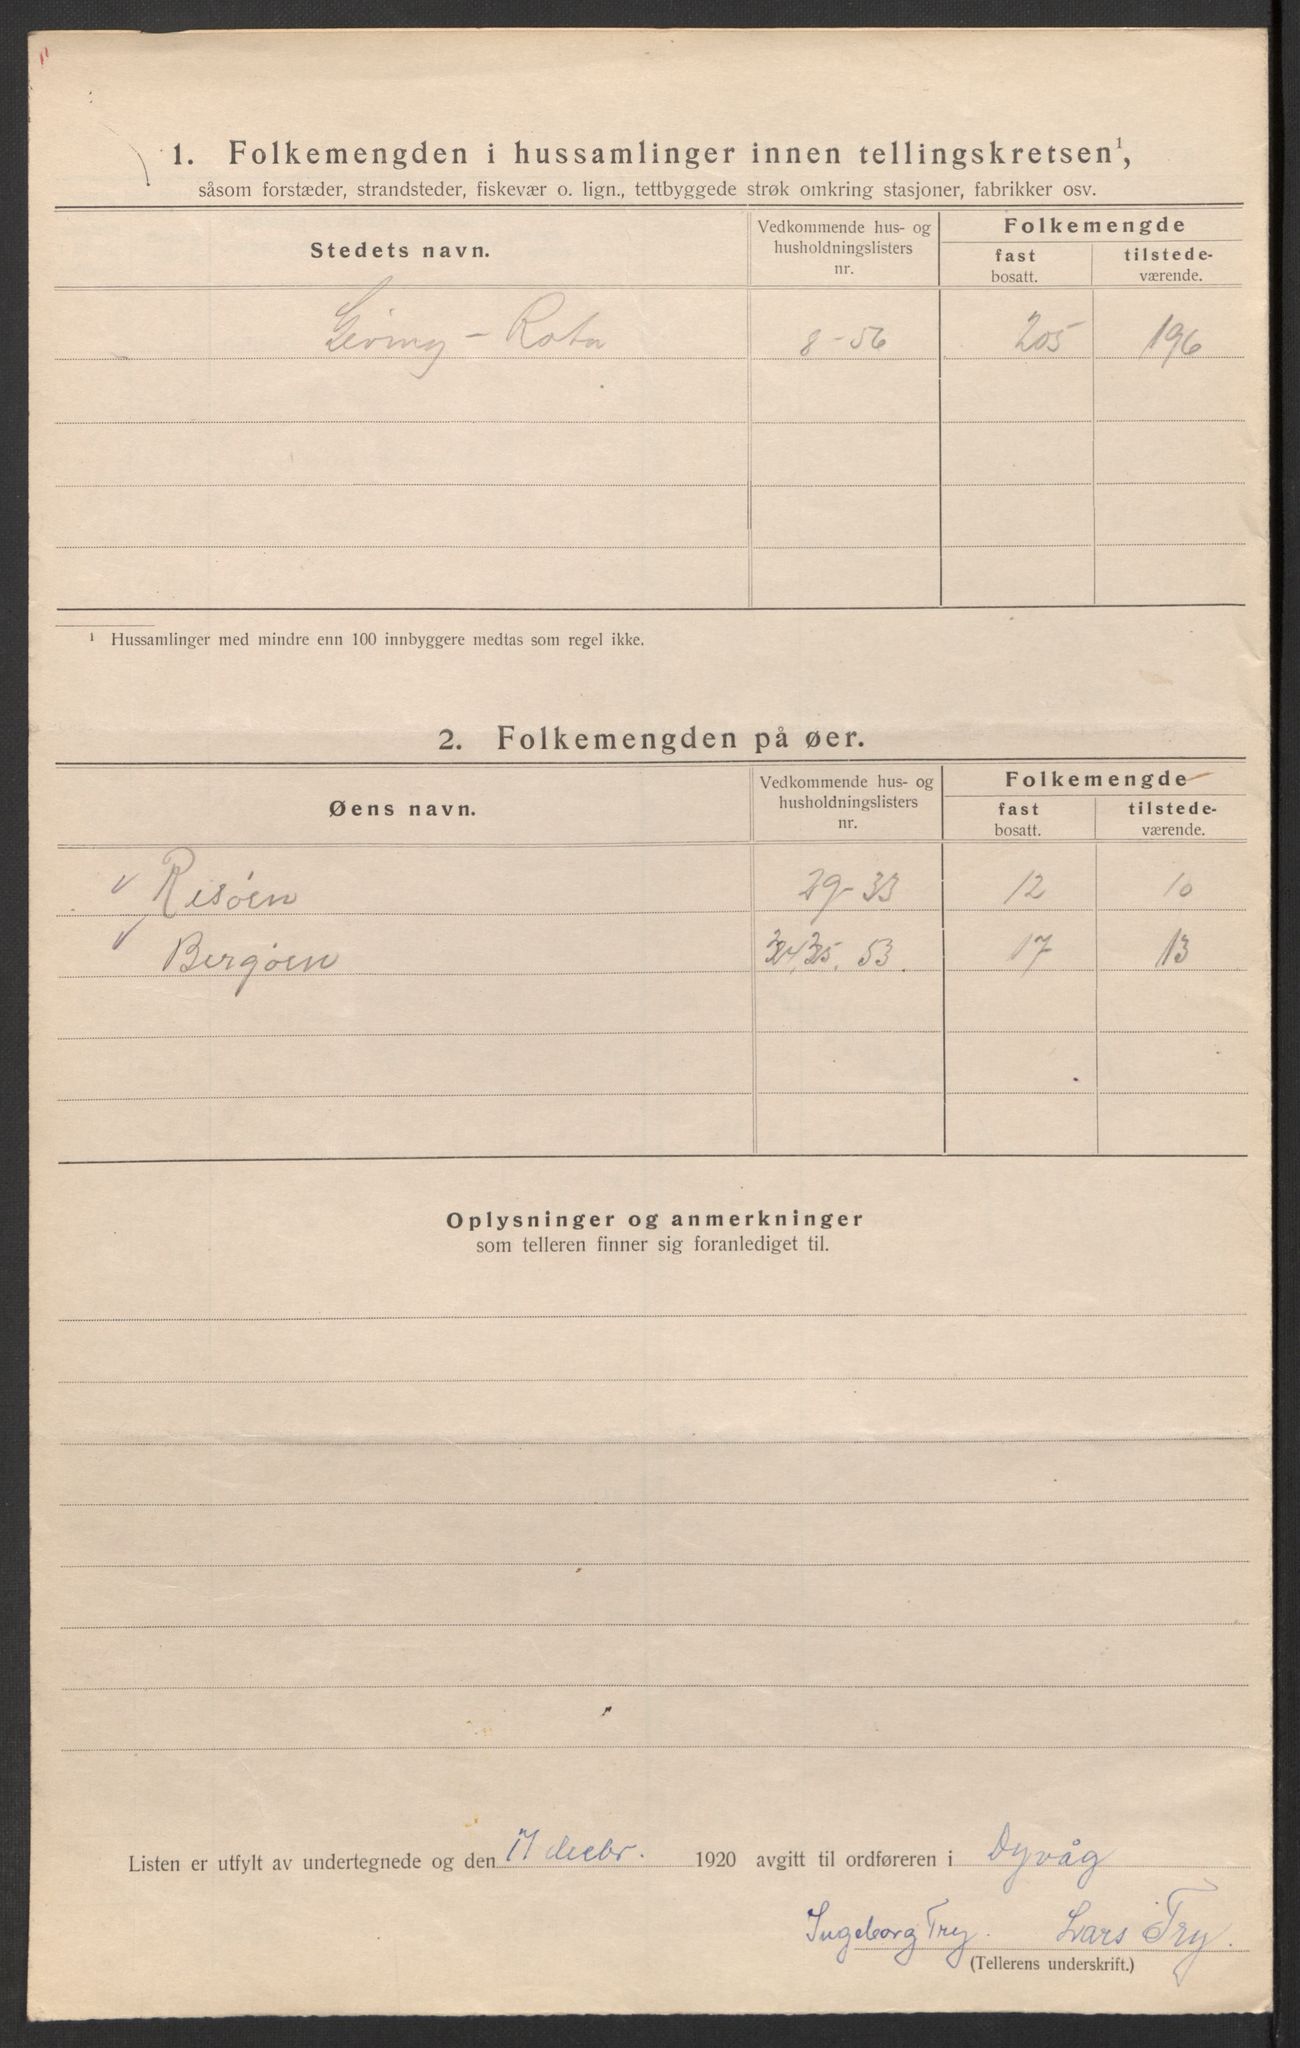 1. Folkemengden i hussamlinger innen tellingskretsen¹,
såsom forstæder, strandsteder, fiskevær o. lign., tettbyggede strøk omkring stasjoner, fabrikker osv.
Stedets navn.
Vedkommende hus- og
husholdningslisters
nr.
Folkemengde
fast
bosatt.
tilstede-
værende.
Geving - Rota 8-56 205 196
¹ Hussamlinger med mindre enn 100 innbyggere medtas som regel ikke.
2. Folkemengden på øer.
Øens navn.
Vedkommende hus- og
husholdningslisters
nr.
Folkemengde
fast
bosatt.
tilstede-
værende.
Risøen 29-33 12 10
Bergøen 34, 35, 53. 17 13
Oplysninger og anmerkninger
som telleren finner sig foranlediget til.
Listen er utfylt av undertegnede og den 17 decbr. 1920 avgitt til ordføreren i Dyvåg
Ingeborg Try. Lars Try.
(Tellerens underskrift.)